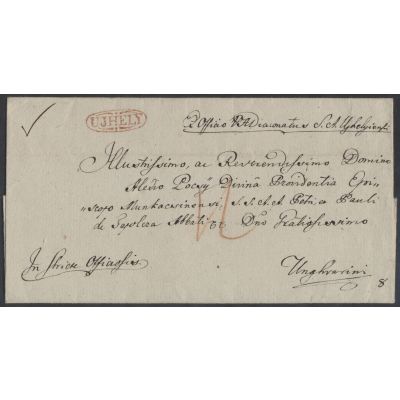 UJHELY
Ex Officio V. A. Diaconatus S. A. Ujhelyiensis
Illustrissimo, ac Reverendissimo Domino
Alexio Pocsy Divinâ Providentia Epis-
"copo Munkacsinensi, S. S. A. A. Petri et Pauli
de Tapolcza Abbati Dno Gratiosissimo
In Stricte Officiosis
Unghvarini